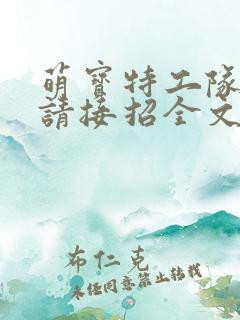 萌寶特工隊
請接招全文
布仁克
未经同意禁止转载